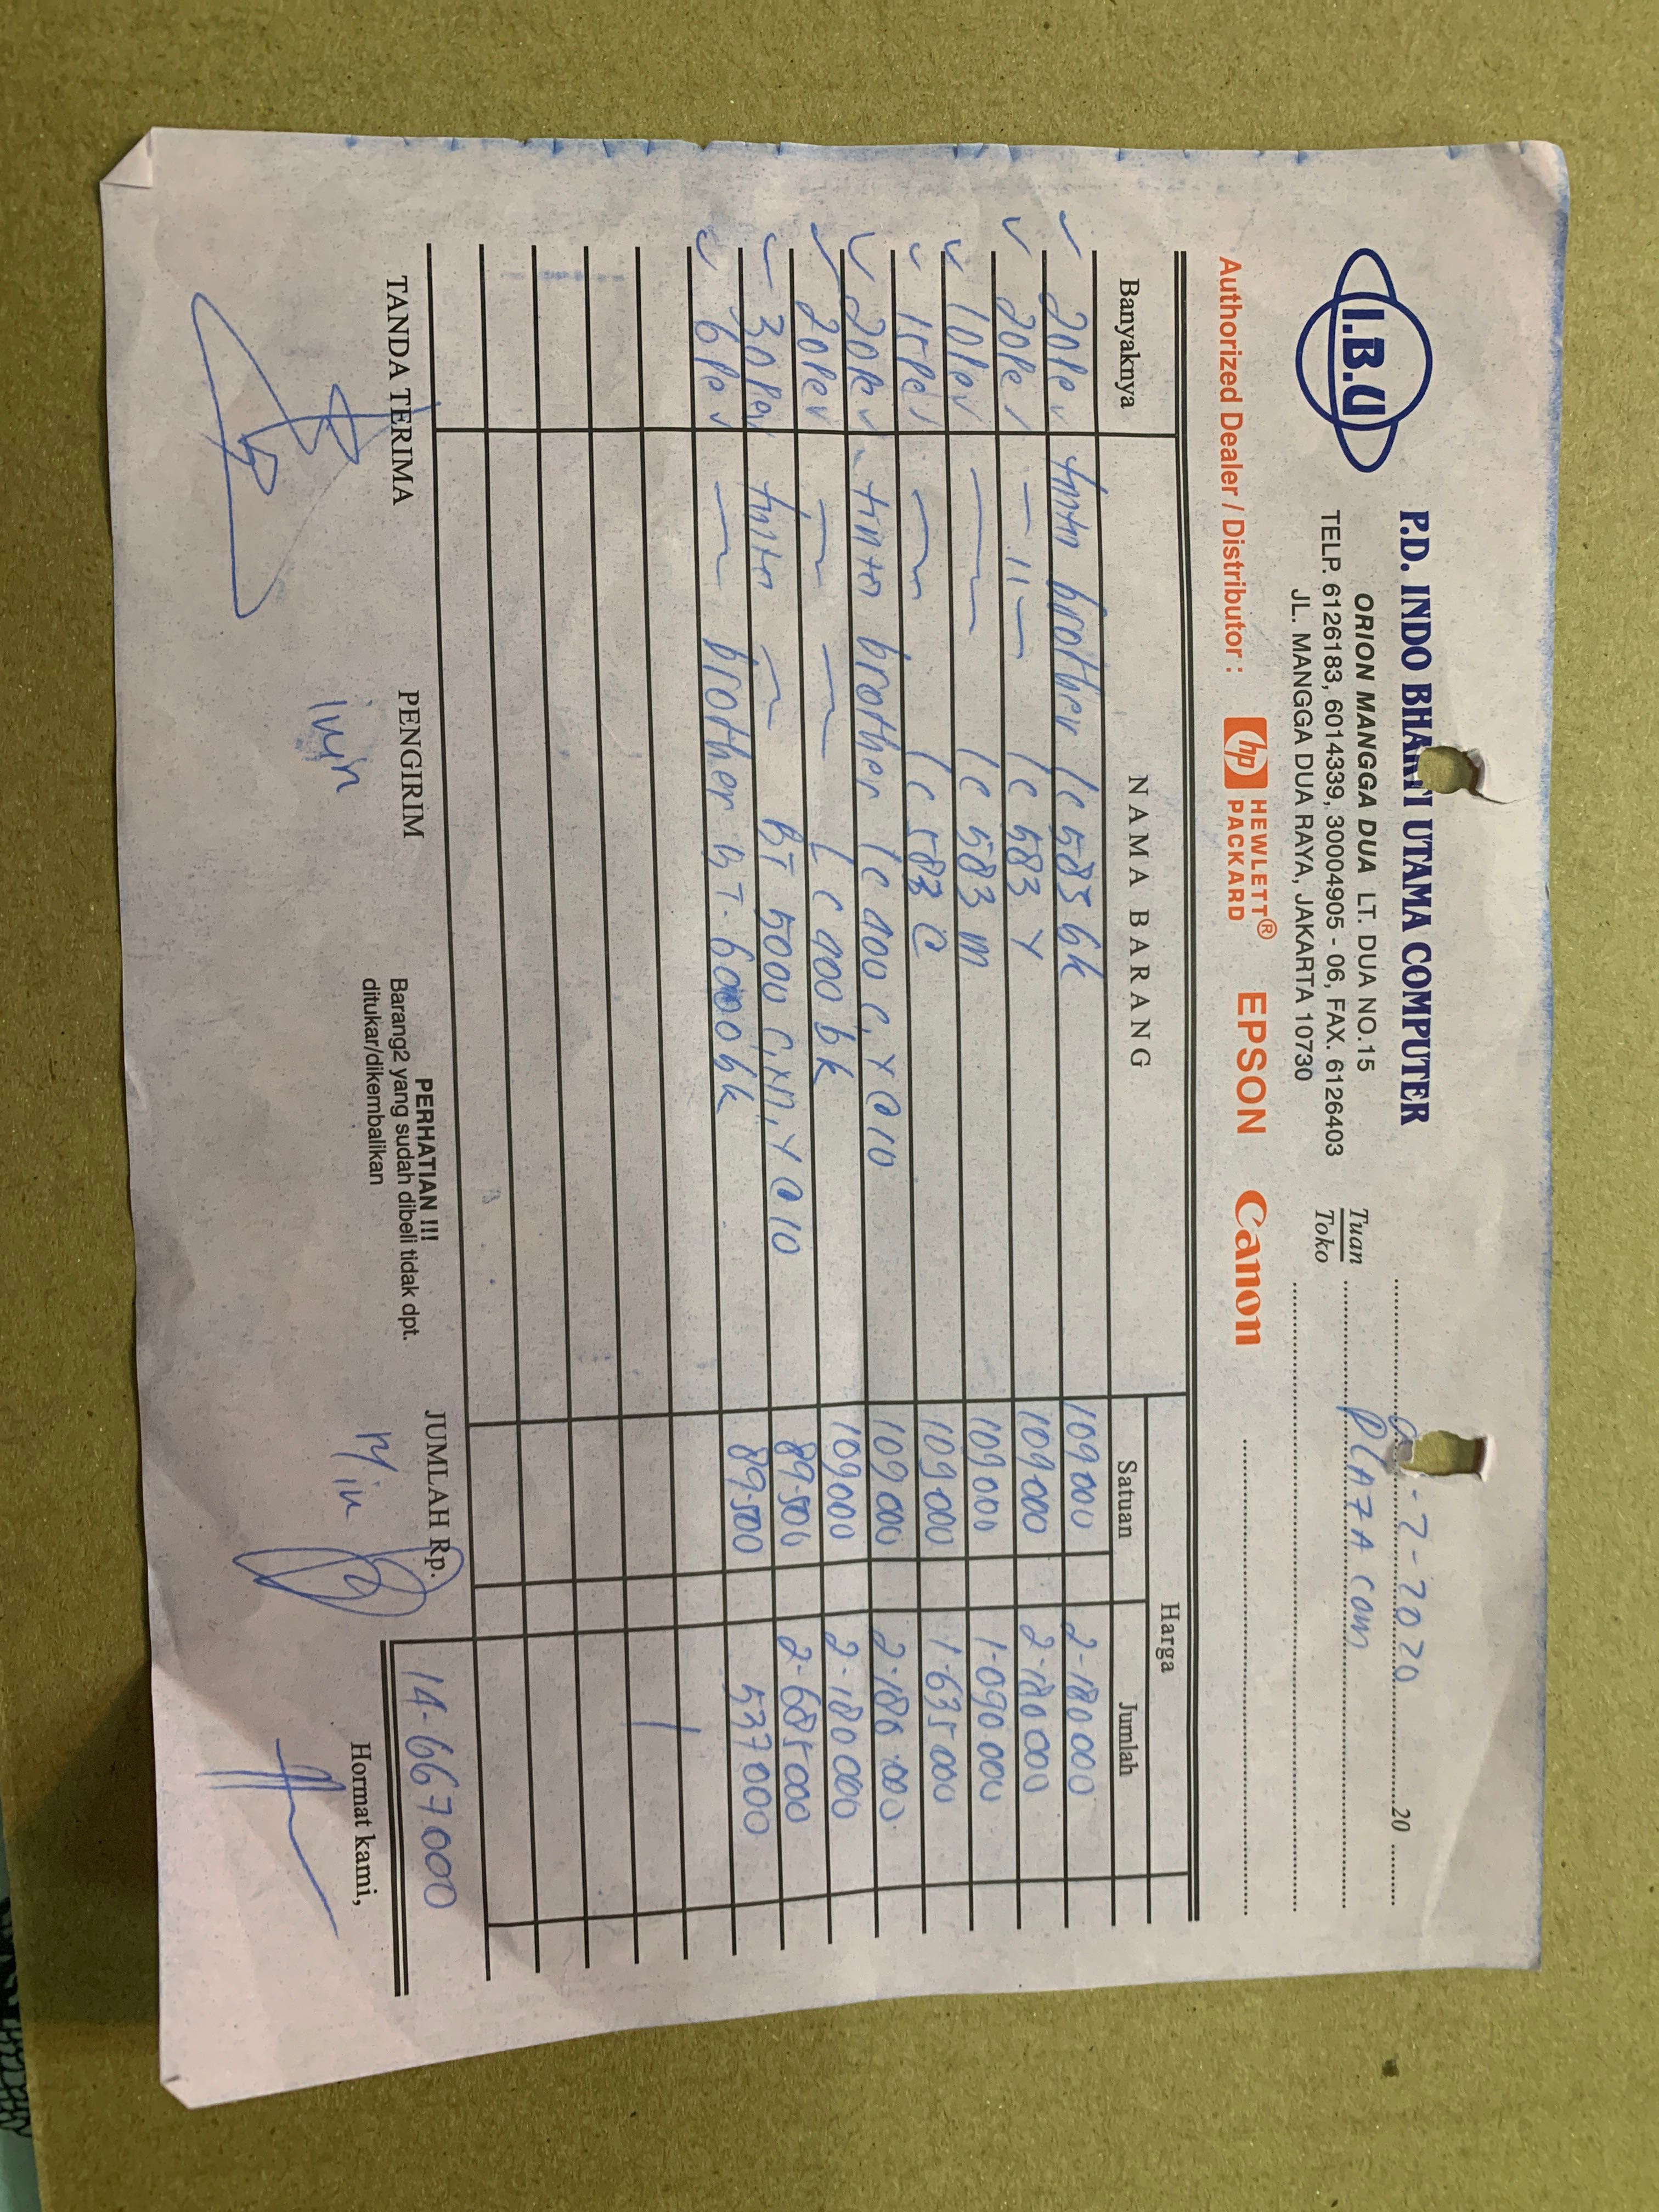 I.B.U
P.D. INDO BHAKTI UTAMA COMPUTER
ORION MANGGA DUA LT. DUA NO.15
TELP. 6126183, 6014339, 30004905 - 06, FAX. 6126403
JL. MANGGA DUA RAYA, JAKARTA 10730
-7-2020 20
Tuan
Toko
PLAZA COM
Authorized Dealer / Distributor : hp HEWLETT® PACKARD EPSON Canon
Banyaknya NAMA BARANG Harga
Satuan Jumlah
20 Pcs tinta brother lc 583 bk 109000 2-180000
20 Pcs -11- lc 583 Y 109000 2-180000
10 Pcs — lc 583 m 109000 1-090.000
15 Pcs — lc 583 C 109000 1-635000
20 Pcs tinta brother lc 400 C, Y @ 10 109000 2-180.000
20 Pcs — — LC 400 bk 109000 2-180000
30 Pcs tinta — BT 5000 C, m, Y @ 10 89.500 2-685000
6 Pcs — brother BT-6000 bk 89.500 537000
TANDA TERIMA PENGIRIM PERHATIAN !!! JUMLAH Rp. 14-667000
Barang2 yang sudah dibeli tidak dpt.
ditukar/dikembalikan
Hormat kami,